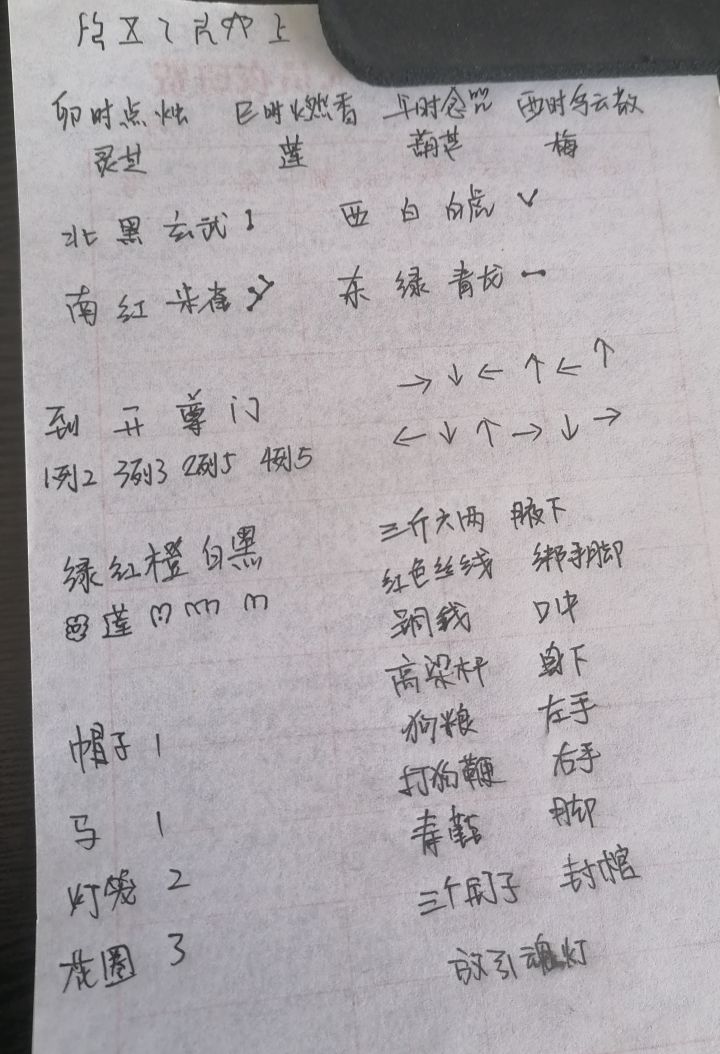 卯时点烛 巳时燃香 午时念咒 酉时乌云散
灵芝 莲 葫芦 梅
北 黑 玄武 西 白 白虎
南 红 朱雀 东 绿 青龙
→ ↓ ← ↑ ← ↑
到 开 尊 门
← ↓ ↑ → ↓ →
1列2 3列3 2列5 4列5
三斤六两 腋下
绿红橙白黑
红色丝线 绑手脚
莲
铜钱 口中
高粱杆 身下
帽子 1
狗粮 左手
打狗鞭 右手
马 1
寿鞋 脚
灯笼 2
三个钉子 封棺
花圈 3
放引魂灯